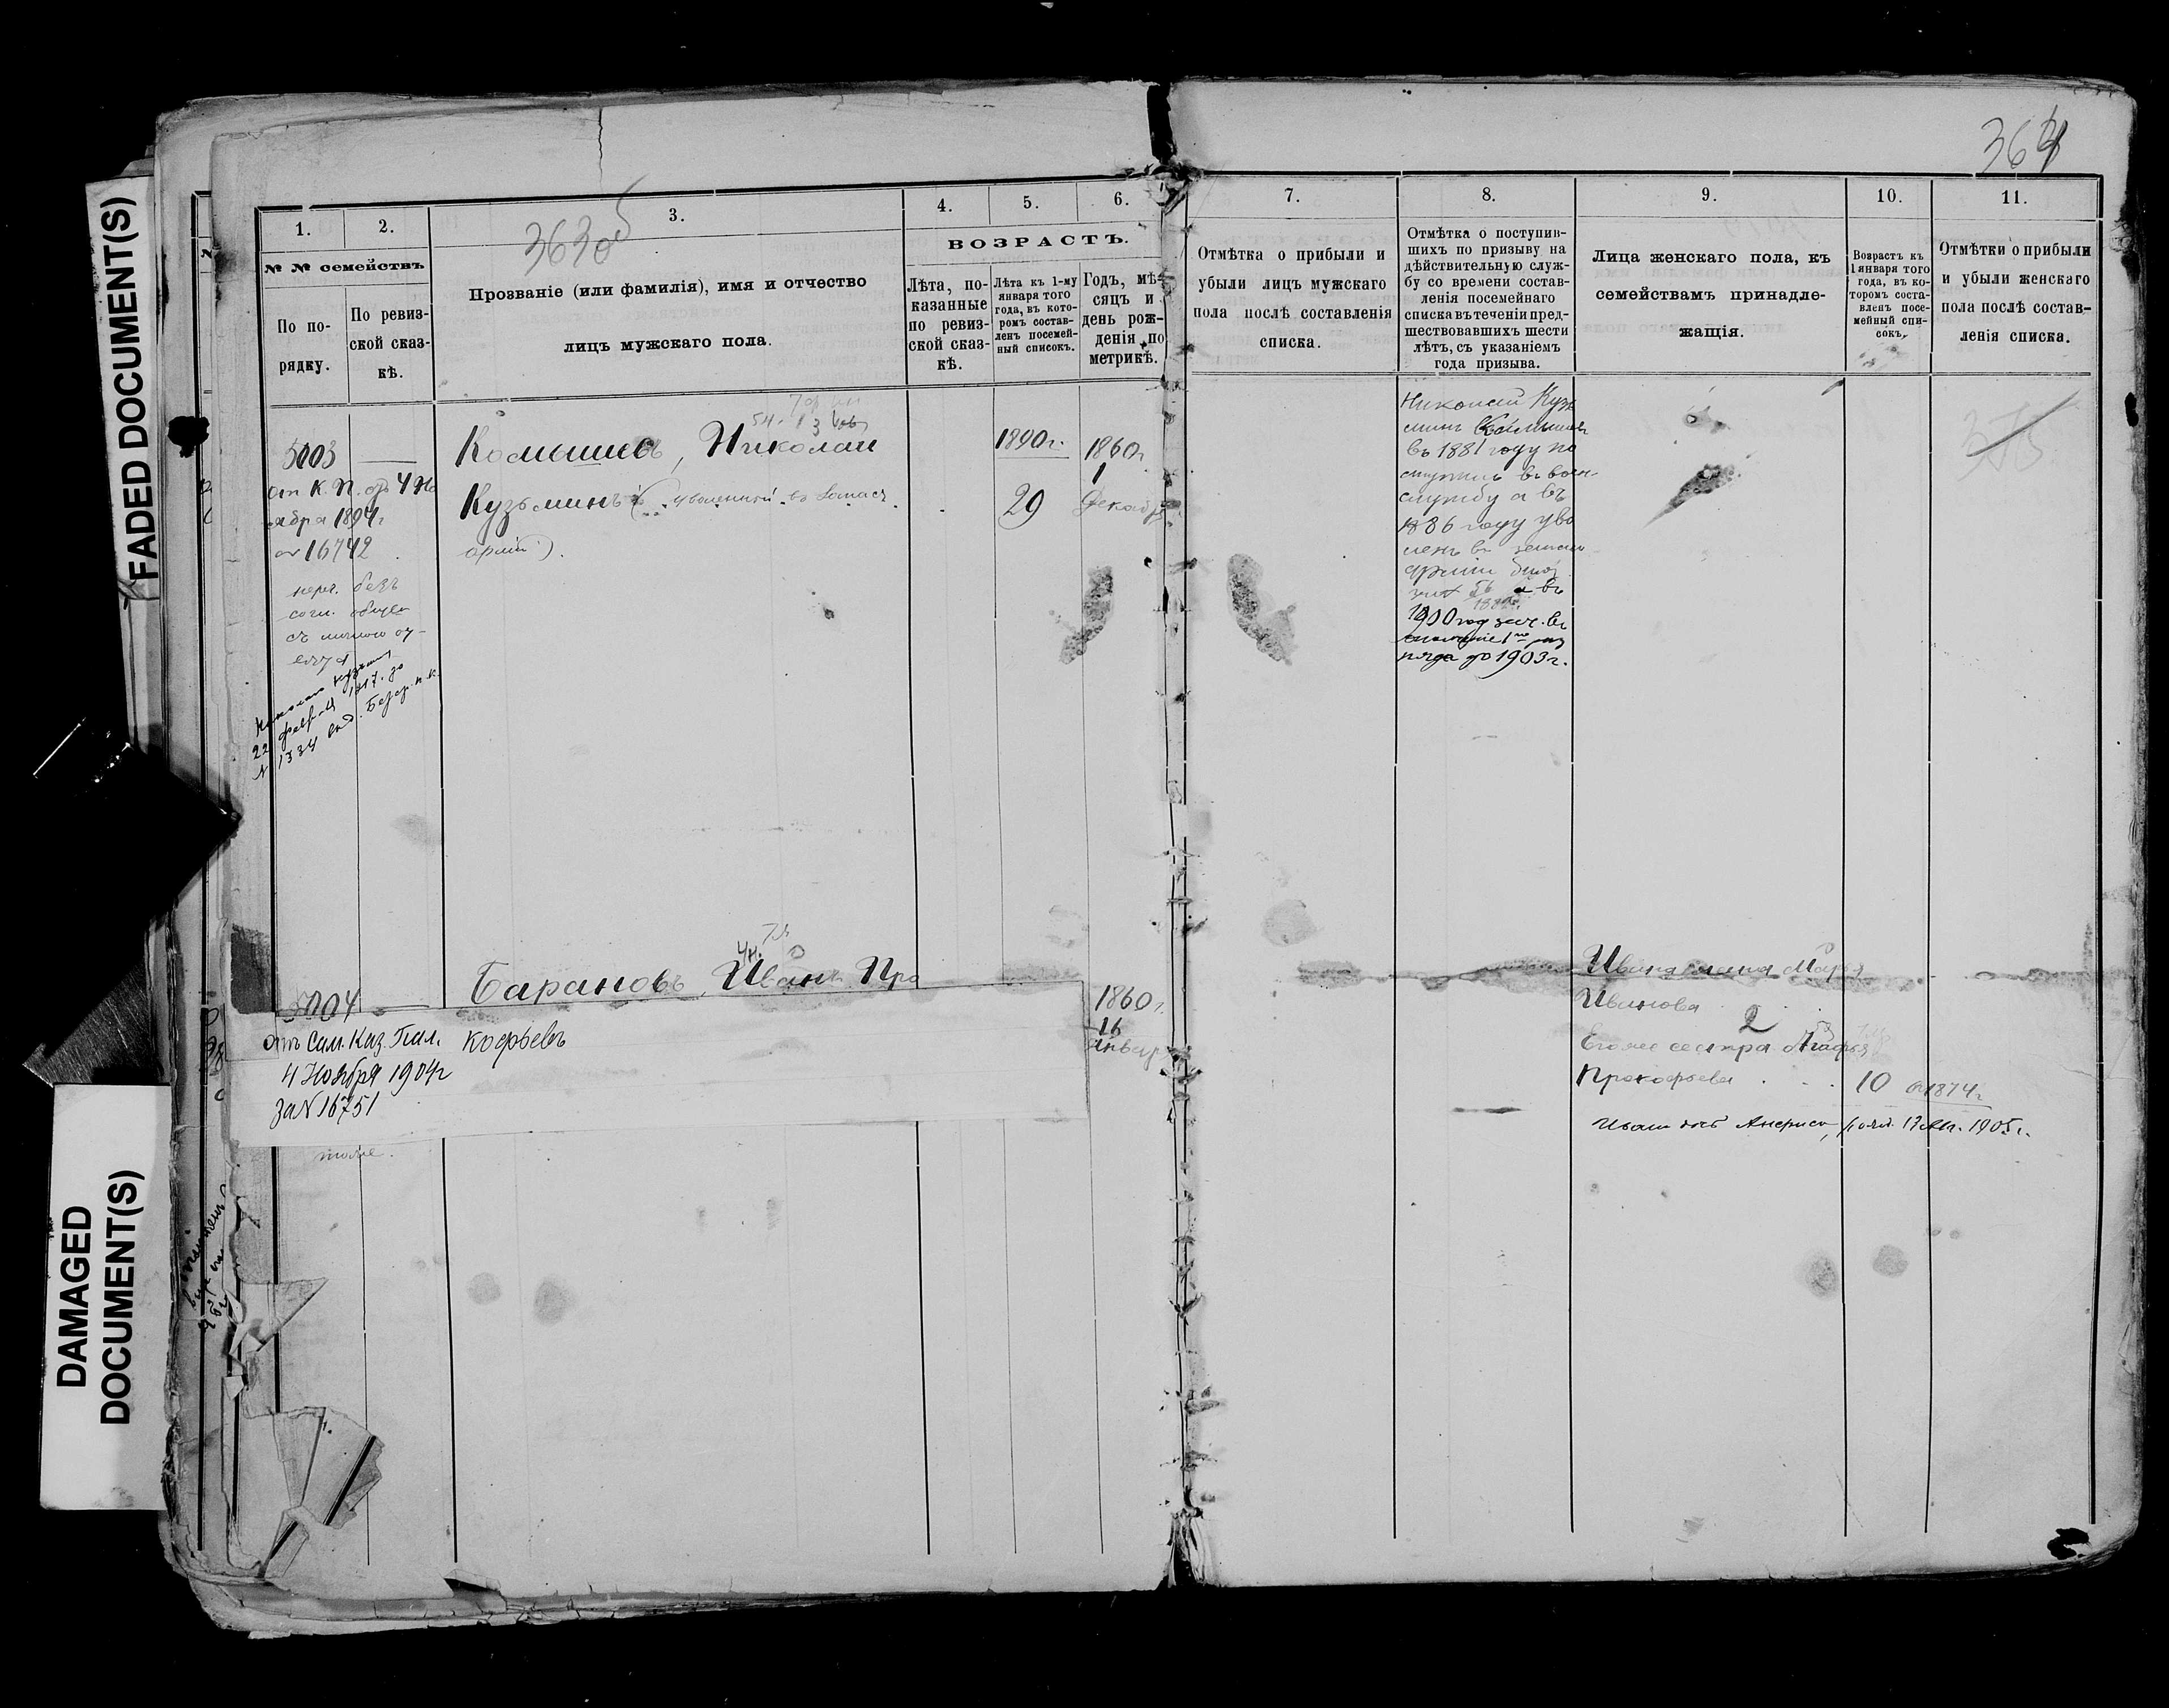 FADED DOCUMENT(S)
DAMAGED
DOCUMENT(S)
364
363об
1.
2.
3.
4.
5.
6.
№ № семействъ
По по-
рядку.
По ревиз-
ской сказ-
кѣ.
Прозваніе (или фамилія), имя и отчество
лицъ мужскаго пола.
ВОЗРАСТЪ.
Лѣта, по-
казанные
по ревиз-
ской сказ-
кѣ.
Лѣта къ 1-му
января того
года, въ кото-
ромъ состав-
ленъ посемей-
ный списокъ.
Годъ, мѣ-
сяцъ и
день рож-
денія по
метрикѣ.
7.
8.
9.
10.
11.
Отмѣтка о прибыли и
убыли лицъ мужскаго
пола послѣ составленія
списка.
Отмѣтка о поступив-
шихъ по призыву на
дѣйствительную служ-
бу со времени состав-
ленія посемейнаго
списка въ теченіи пред-
шествовавшихъ шести
лѣтъ, съ указаніемъ
года призыва.
Лица женскаго пола, къ
семействамъ принадле-
жащія.
Возрастъ къ
1 января того
года, въ ко-
торомъ соста-
вленъ посе-
мейный спи-
сокъ.
Отмѣтки о прибыли
и убыли женскаго
пола послѣ состав-
ленія списка.
5003
от К. П. отъ 4 Но
ября 1894г
16742
переч. безъ
согл. общес
22 феврал 1917. за
№ 1334
Николай
Кузьминъ (уволенный въ запасъ
арміи).
1890г.
29
1860г
1
Декабр
Николай Кузь
минъ
въ 1881 году по
ступилъ въ воен.
службу а въ
1886 году уво
ленъ въ запас
арміи
а въ
1900 год зач. въ
ополченіе 1го раз
ряда до 1903г.
5004
отъ Сам. Каз. Пал.
4 Ноября 1904г
за № 16751
Барановъ, Иванъ Про
кофьевъ
1860г.
16
Январ
Ивана жена Марья
Иванова
2
Его же сестра Агафья
Прокофьева
10
1874г
Ивана дочь
1905г.